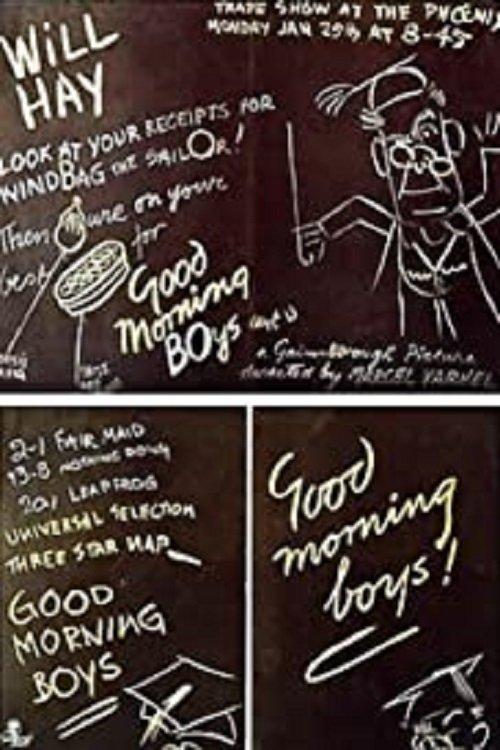 TRADE SHOW AT THE PHOENIX
MONDAY JAN 25th AT 8-45
WiLL
HAY
LOOK AT YOUR RECEIPTS FOR
WINDBAG THE SAILOR!
Then figure on your
best for
Good
Morning
BOys
a Gainsborough Picture
directed by MARCEL VARNEL
2-1 FAIR MAID
13-8
20/1 LEAPFROG
UNIVERSAL SELECTION
THREE STAR NAP
GOOD
MORNING
BOYS
Good
morning
boys!